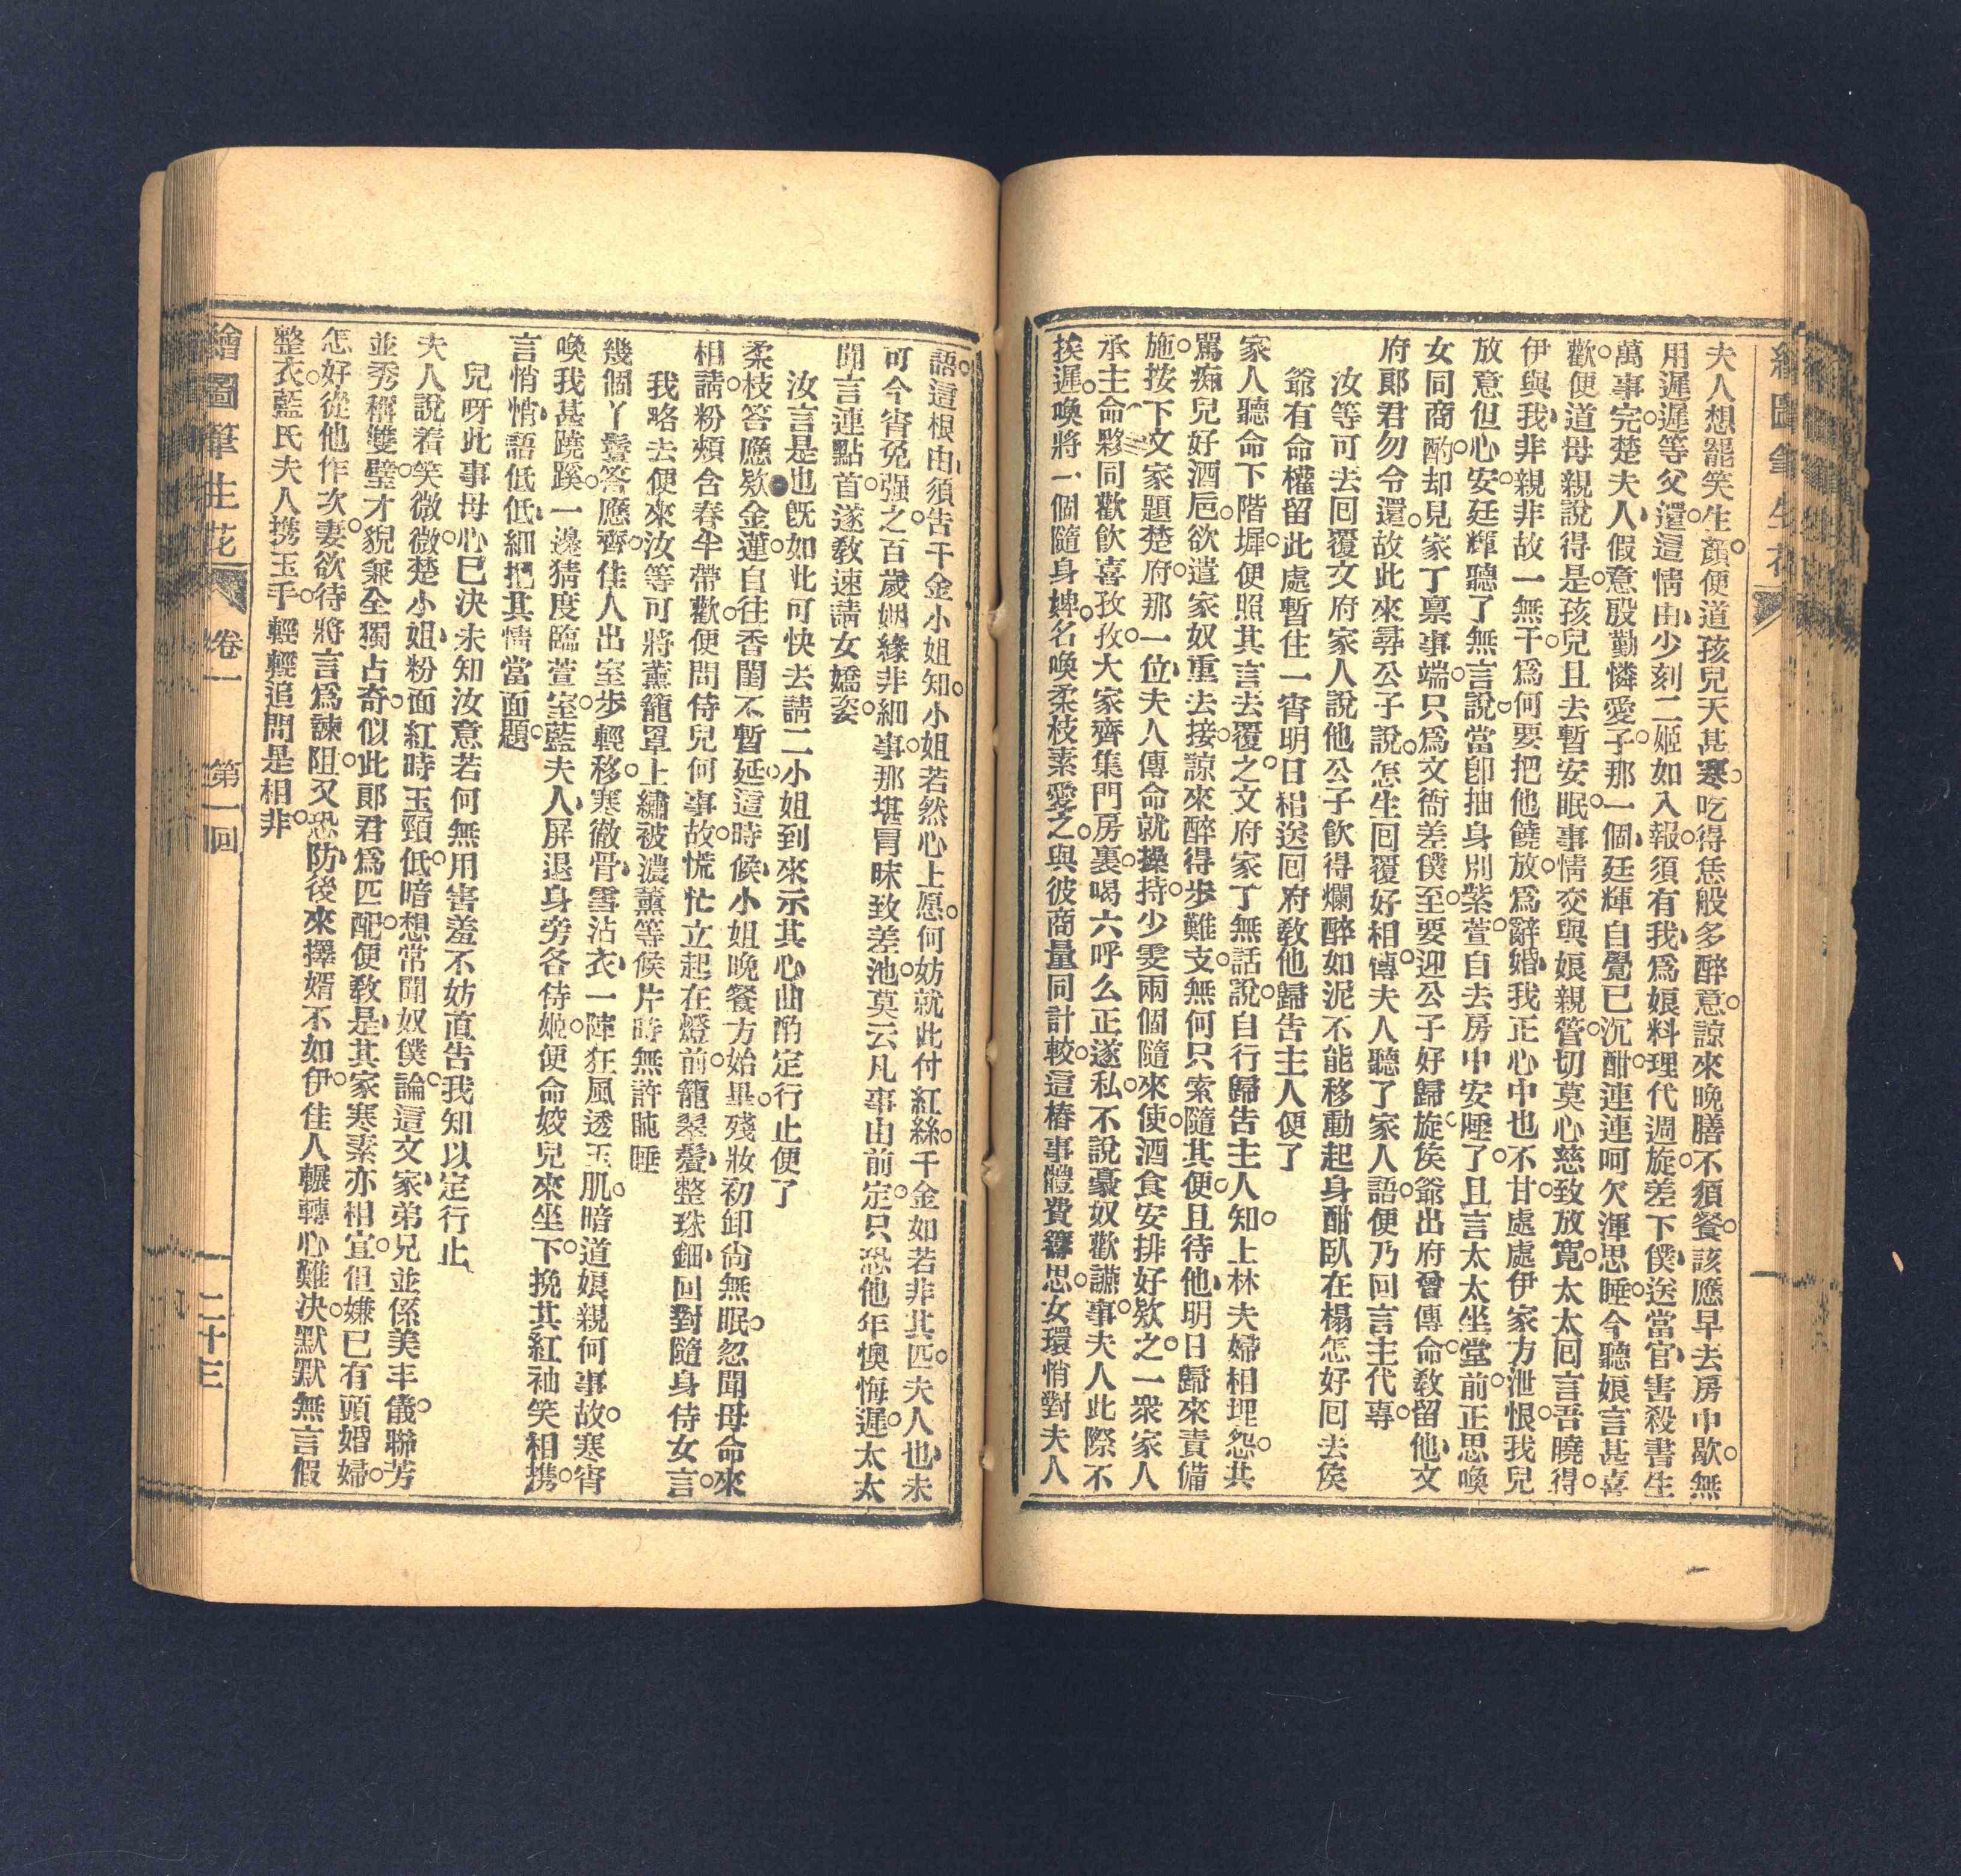 繪圖筆生花
夫人想罷笑生顏便道孩兒天甚寒吃得恁般多醉意諒來晚膳不須餐該應早去房中歇無
用遲遲等父還這情由少刻二姬如入報須有我爲娘料理代週旋差下僕送當官害殺書生
萬事完楚夫人假意殷勤憐愛子那一個廷輝自覺已沉酣連連呵欠渾思睡今聽娘言甚喜
歡便道母親說得是孩兒且去暫安眠事情交與娘親管切莫心慈致放寬太太回言吾曉得
伊與我非親非故一無干爲何要把他饒放爲辭婚我正心中也不甘處處伊家方泄恨我兒
放意但心安廷輝聽了無言說當卽抽身別紫萱自去房中安睡了且言太太坐堂前正思喚
女同商酌却見家丁禀事端只爲文衙差僕至要迎公子好歸旋俟爺出府曾傳命敎留他文
府郞君勿令還故此來尋公子說怎生回覆好相傳夫人聽了家人語便乃回言主代專
汝等可去回覆文府家人說他公子飲得爛醉如泥不能移動起身酣臥在榻怎好回去俟
爺有命權留此處暫住一宵明日相送回府敎他歸告主人便了
家人聽命下階墀便照其言去覆之文府家丁無話說自行歸告主人知上林夫婦相埋怨其
罵痴兒好酒巵欲遣家奴重去接諒來醉得步難支無何只索隨其便且待他明日歸來責備
施按下文家題楚府那一位夫人傳命就操持少雯兩個隨來使酒食安排好欵之一衆家人
承主命夥同歡飮喜孜孜大家齊集門房裏喝六呼么正遂私不說豪奴歡讌事夫人此際不
挨遲喚將一個隨身婢名喚柔枝素愛之與彼商量同計較這樁事體費籌思女環悄對夫人
語這根由須告千金小姐知小姐若然心上愿何妨就此付紅絲千金如若非其匹夫人也未
可今宵免强之百歲姻緣非細事那堪冒昧致差池莫云凡事由前定只恐他年懊悔遲太太
聞言連點首遂敎速請女嬌姿
汝言是也旣如此可快去請二小姐到來示其心曲酌定行止便了
柔枝答應欵金蓮自往香閨不暫延這時候小姐晚餐方始畢殘妝初卸尙無眠忽聞母命來
相請粉頰含春半帶歡便問侍兒何事故慌忙立起在燈前籠翠鬢整珠鈿回對隨身侍女言
我略去便來汝等可將薰籠罩上繡被濃薰等候片時無許盹睡
幾個丫鬟答應齊佳人出室步輕移寒徹骨雪沾衣一陣狂風透玉肌暗道娘親何事故寒宵
喚我甚蹺蹊一邊猜度臨萱室藍夫人屏退身旁各侍姬便命姣兒來坐下挽其紅袖笑相携
言悄悄語低低細把其情當面題
兒呀此事母心已決未知汝意若何無用害羞不妨直告我知以定行止
夫人說着笑微微楚小姐粉面紅時玉頸低暗想常聞奴僕論這文家弟兄並係美丰儀聯芳
並秀稱雙璧才貌兼全獨占奇似此郞君爲匹配便敎是其家寒素亦相宜但嫌已有頭婚婦
怎好從他作次妻欲待將言爲諫阻又恐防後來擇婿不如伊佳人輾轉心難決默默無言假
整衣藍氏夫人携玉手輕輕追問是相非
繪圖筆生花　卷一　第一回　二十三